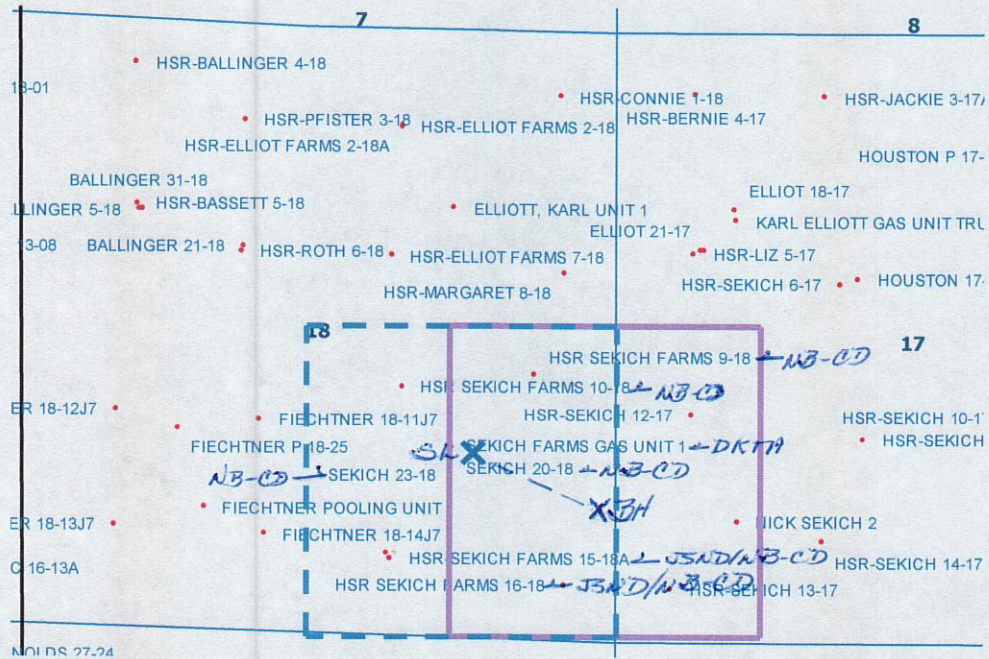 7
8
HSR-BALLINGER 4-18
13-01
HSR-CONNIE 1-18
HSR-JACKIE 3-17A
HSR-PFISTER 3-18
HSR-ELLIOT FARMS 2-18
HSR-BERNIE 4-17
HSR-ELLIOT FARMS 2-18A
HOUSTON P 17-
BALLINGER 31-18
ELLIOT 18-17
LLINGER 5-18
HSR-BASSETT 5-18
ELLIOTT, KARL UNIT 1
KARL ELLIOTT GAS UNIT TRU
ELLIOT 21-17
13-08
BALLINGER 21-18
HSR-ROTH 6-18
HSR-ELLIOT FARMS 7-18
HSR-LIZ 5-17
HSR-MARGARET 8-18
HSR-SEKICH 6-17
HOUSTON 17-
18
17
HSR SEKICH FARMS 9-18 NB-CD
HSR SEKICH FARMS 10-18 NB-CD
ER 18-12J7
FIECHTNER 18-11J7
HSR-SEKICH 12-17
HSR-SEKICH 10-1
FIECHTNER P 18-25
SL X
SEKICH FARMS GAS UNIT 1 DKTA
HSR-SEKICH
NB-CD SEKICH 23-18
SEKICH 20-18 NB-CD
FIECHTNER POOLING UNIT
X BH
ER 18-13J7
FIECHTNER 18-14J7
NICK SEKICH 2
C 16-13A
HSR-SEKICH FARMS 15-18A JSND/NB-CD
HSR-SEKICH 14-17
HSR SEKICH FARMS 16-18 JSND/NB-CD
HSR-SEKICH 13-17
NOLDS 27-24